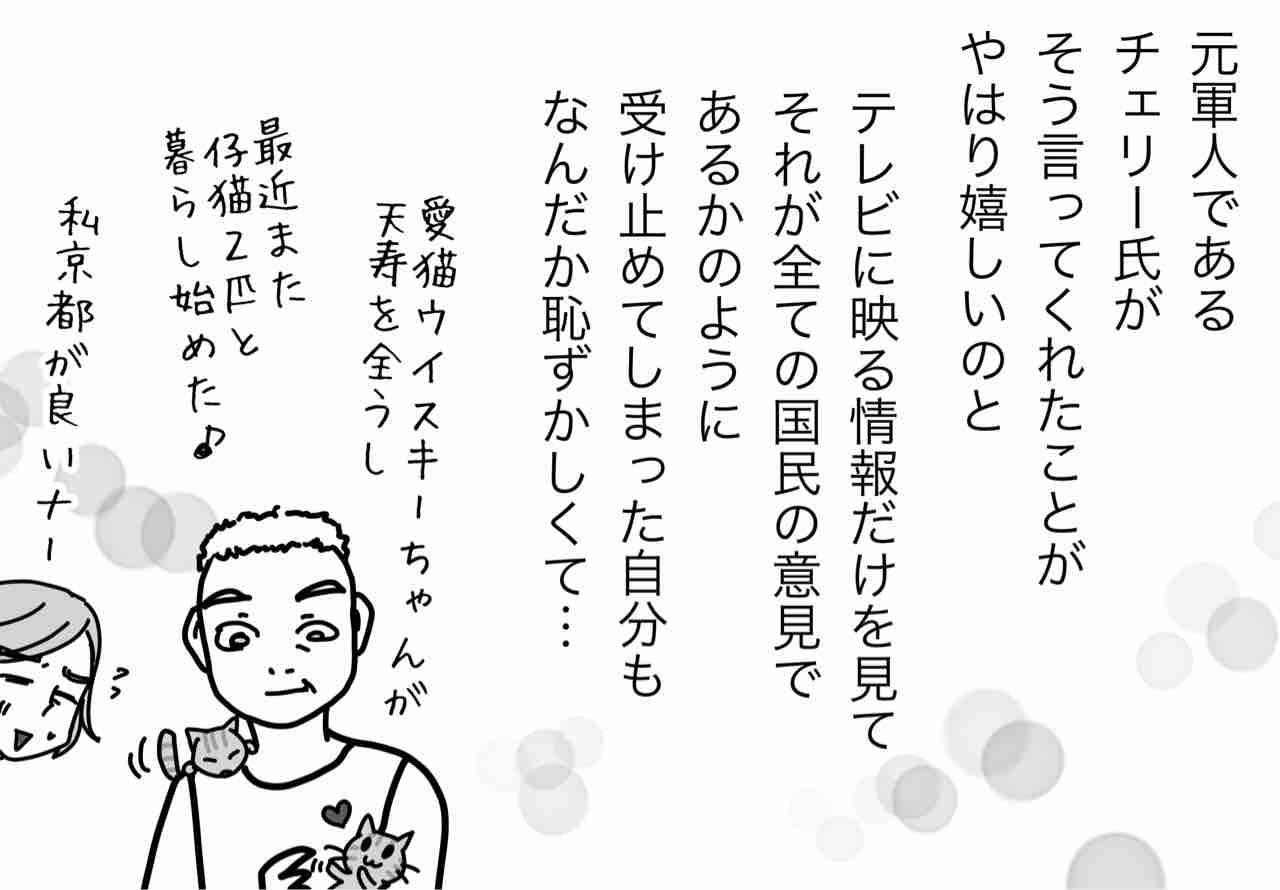 元軍人である
チェリー氏が
そう言ってくれたことが
やはり嬉しいのと
テレビに映る情報だけを見て
それが全ての国民の意見で
あるかのように
受け止めてしまった自分も
なんだか恥ずかしくて…
愛猫ウイスキーちゃんが
天寿を全うし
最近また
仔猫2匹と
暮らし始めた♪
私京都が良いナー